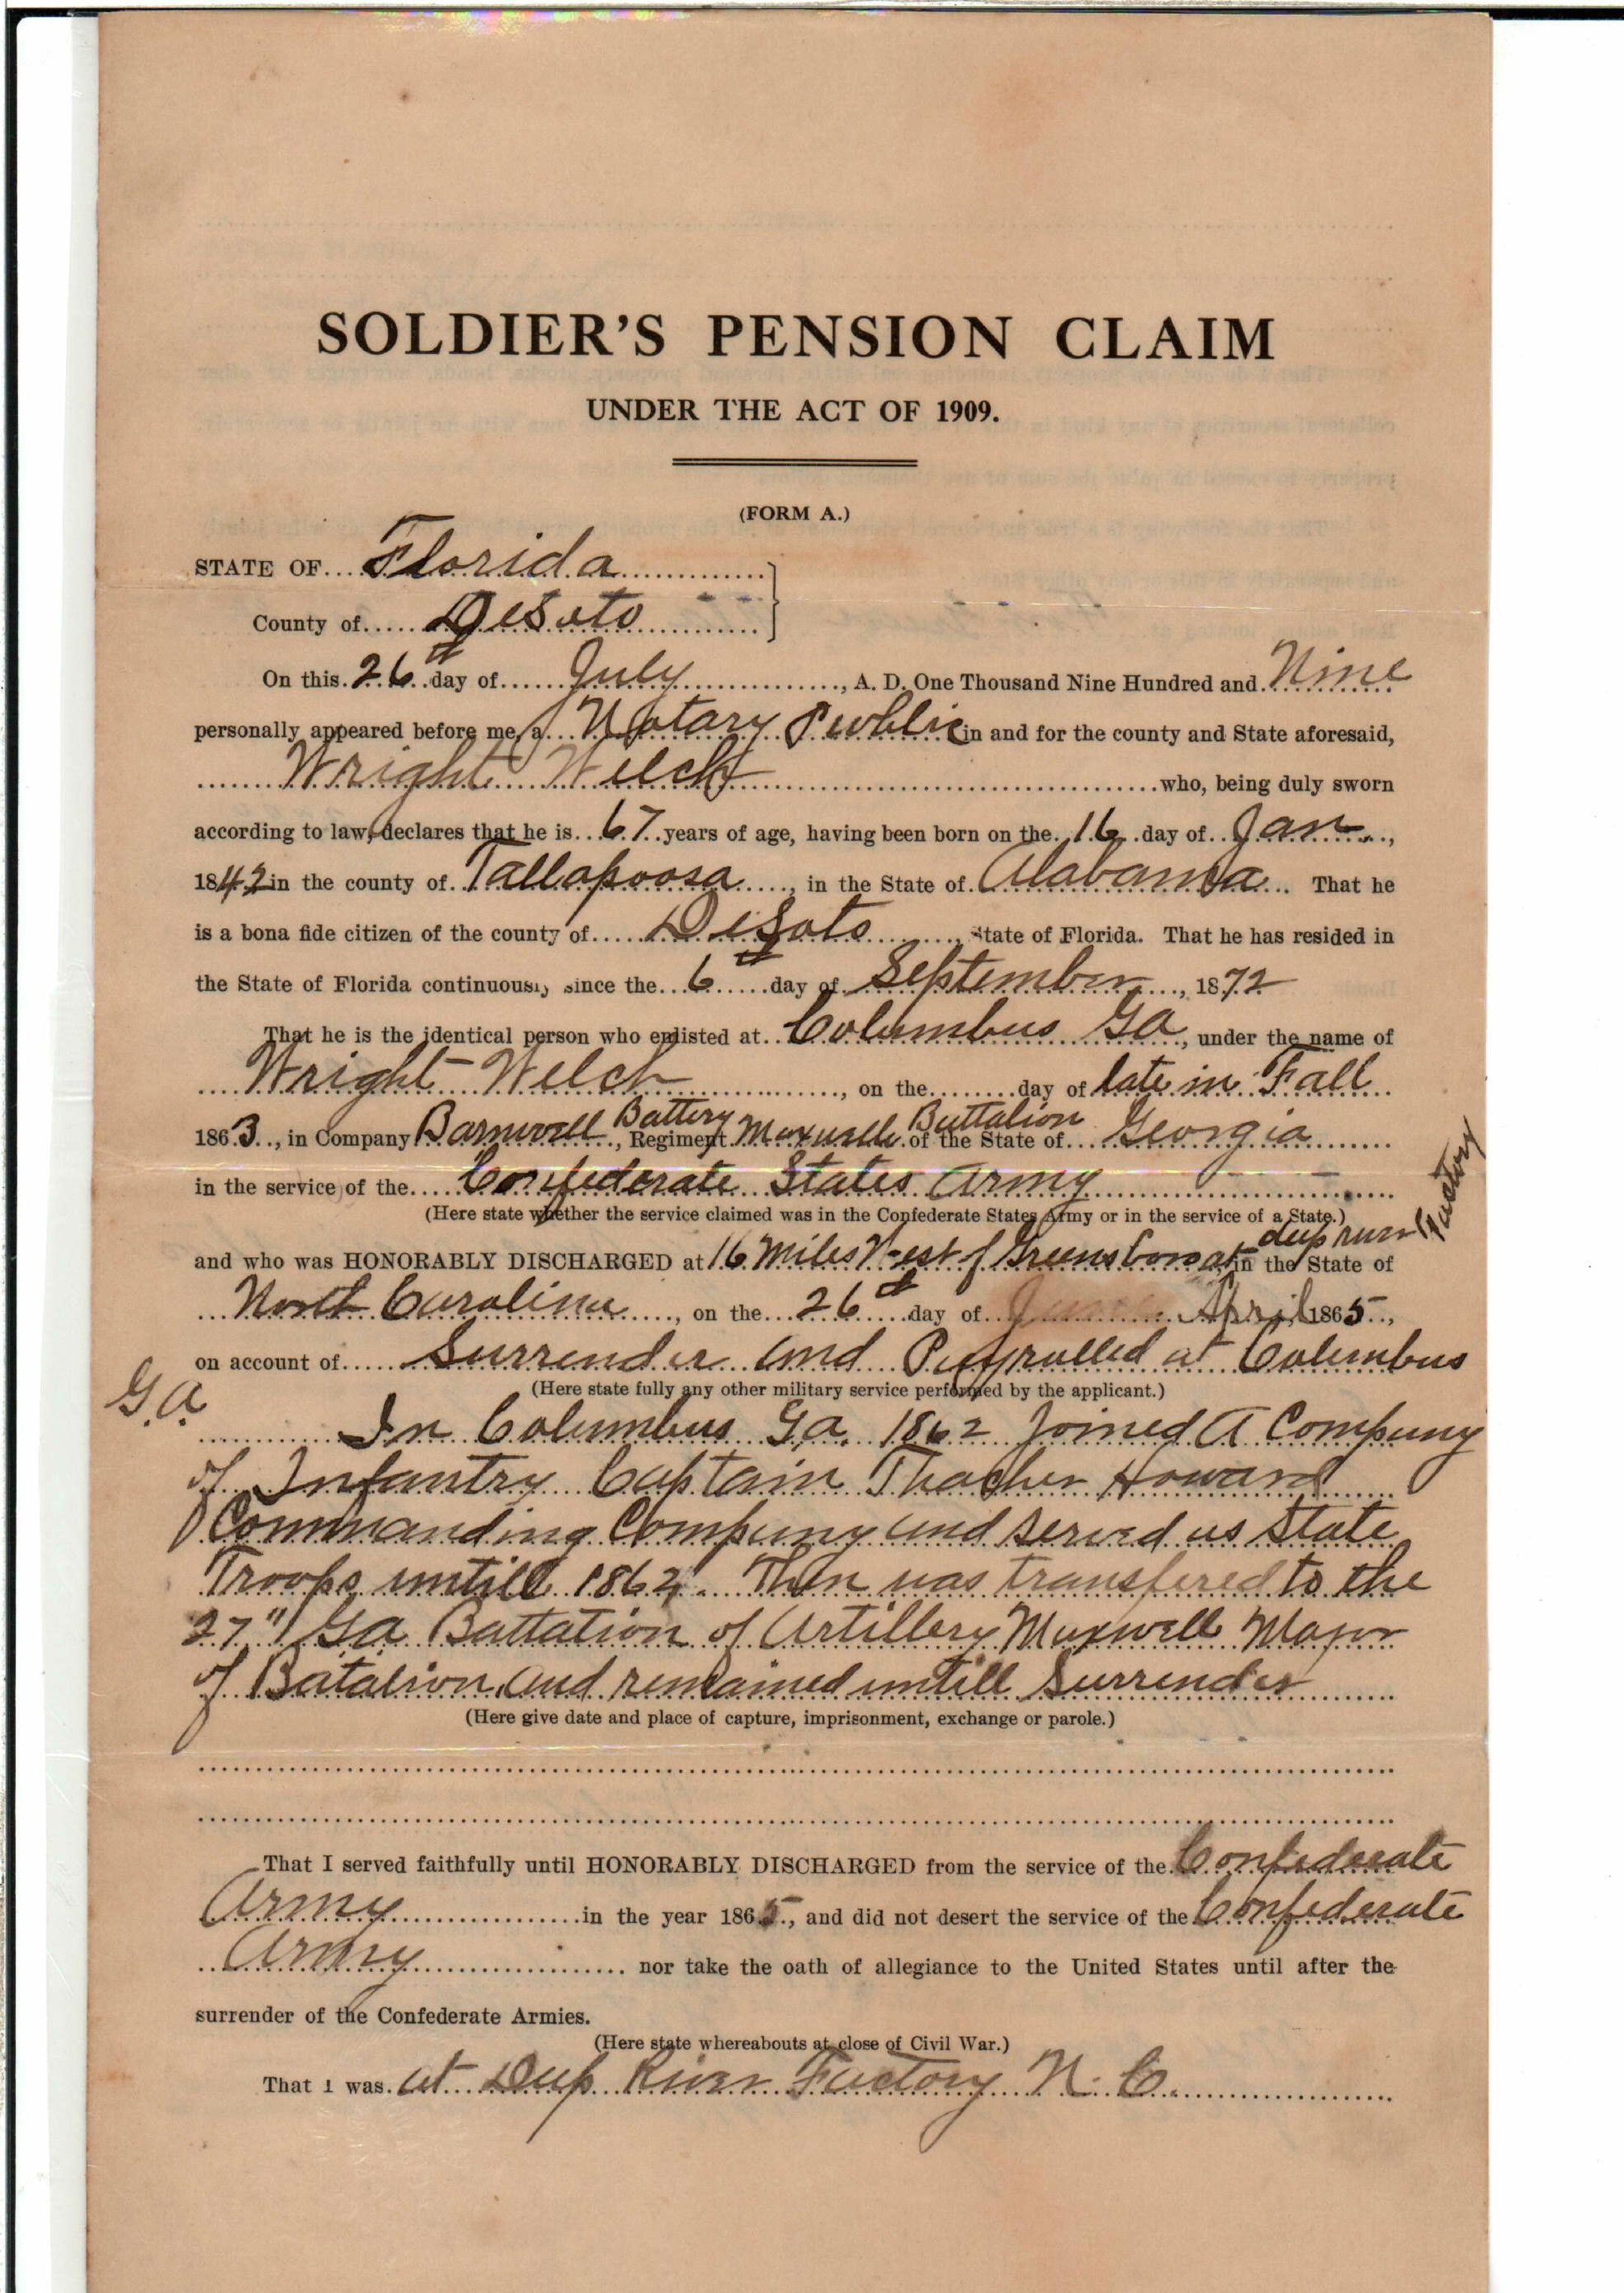 SOLDIER'S PENSION CLAIM
UNDER THE ACT OF 1909.
(FORM A.)
STATE OF Florida
County of DeSoto
On this 26th day of July, A. D. One Thousand Nine Hundred and Nine
personally appeared before me, a Notary Public in and for the county and State aforesaid,
Wright Welch who, being duly sworn
according to law, declares that he is 67 years of age, having been born on the 16 day of Jan,
1842 in the county of Tallapoosa, in the State of Alabama. That he
is a bona fide citizen of the county of DeSoto, State of Florida. That he has resided in
the State of Florida continuously since the 6th day of September, 1872
That he is the identical person who enlisted at Columbus Ga, under the name of
Wright Welch, on the day of late in Fall
1863, in Company Barnwell Battery, Regiment Maxwells Battalion of the State of Georgia
in the service of the Confederate States Army
(Here state whether the service claimed was in the Confederate States Army or in the service of a State.)
and who was HONORABLY DISCHARGED at 16 Miles West of Greensboro at deep river Factory in the State of
North Carolina, on the 26th day of April 1865,
on account of Surrender and Payrolled at Columbus
Ga.
(Here state fully any other military service performed by the applicant.)
In Columbus Ga. 1862 Joined A Company
of Infantry Captain Thacher Howard
Commanding Company and served as State
Troops untill 1862. Then was transfered to the
27" Ga Battation of Artillery Maxwell Major
of Batalion, and remained untill Surrender
(Here give date and place of capture, imprisonment, exchange or parole.)
That I served faithfully until HONORABLY DISCHARGED from the service of the Confederate
Army in the year 1865, and did not desert the service of the Confederate
Army nor take the oath of allegiance to the United States until after the
surrender of the Confederate Armies.
(Here state whereabouts at close of Civil War.)
That I was at Deep River Factory N. C.